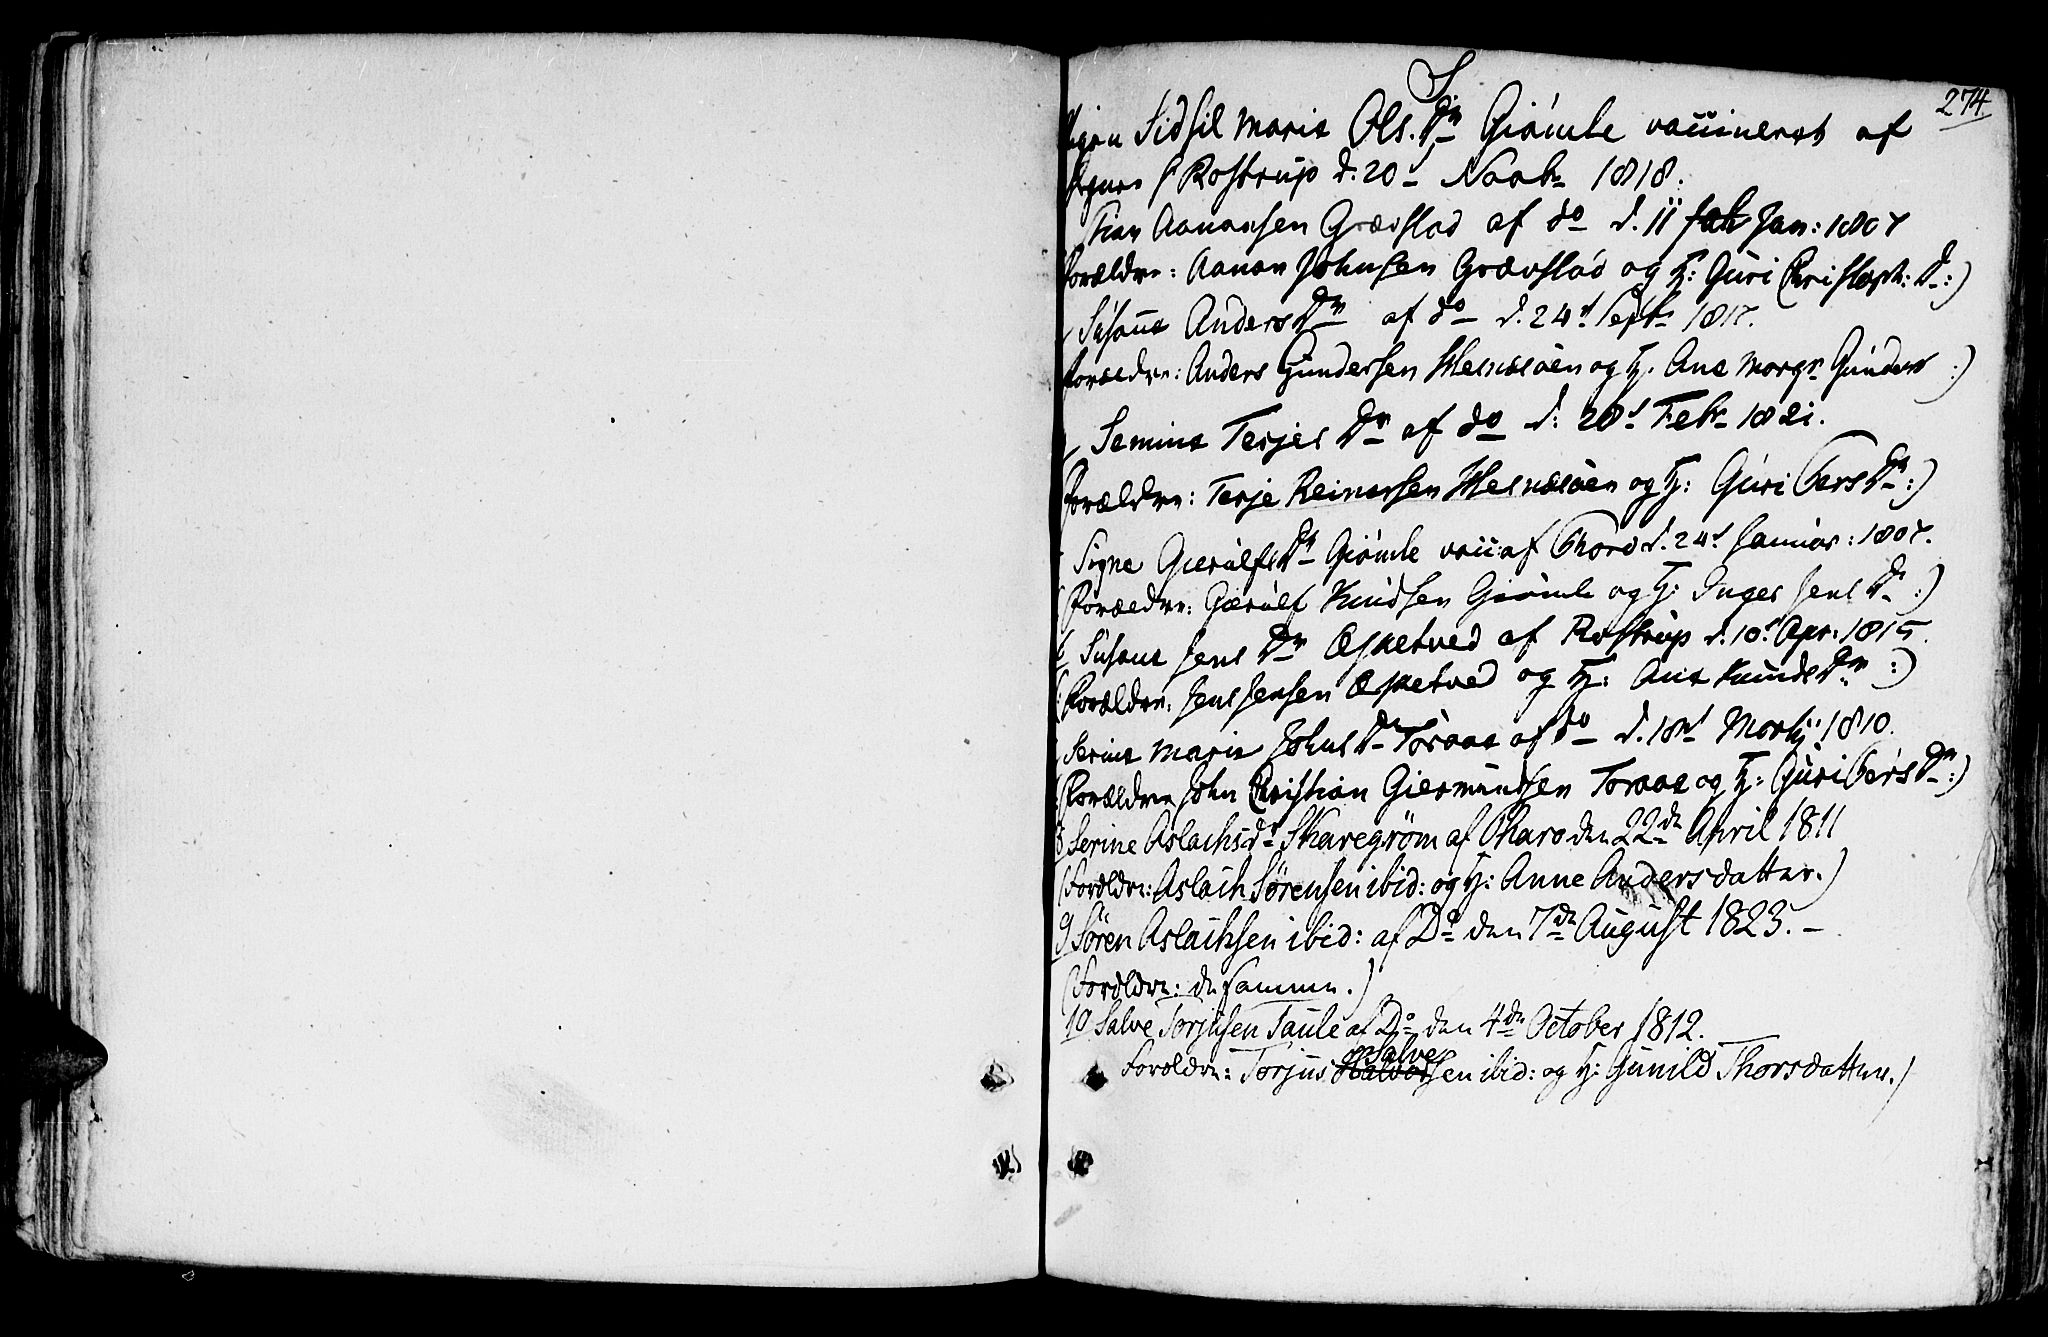 S
274
Sidsil Maria Ols. Dr Giömle vaccineret af
Rostrup d. 20 Novbr 1818.
Aanonsen Grævstad af do d. 11 Jan: 1807
Forældre: Aanon Johnsen Grævstad og H: Guri Christoph: D:)
Susanne Anders Dr af do d. 24d Septr 1817.
Forældre: Anders Gundersen Hesnæsöen og H. Ane Margr Gunders :)
Semine Terjes Dr af do d: 28d Febr 1821.
Forældre: Terje Reinersen Hesnesöen og H: Guri Bers Dr:)
Signe Gierulfs Dr Giömle vacc: af Thoro d. 24d Januar: 1807.
(Forældre: Gierulf Knudsen Giömle og H: Inger Jens Dr :)
6 Susane Jens Dr Esketved af Rostrup d. 10d Apr: 1815.
(Forældre: Jens Jensen Esketved og H: Ane Knuds Dr :)
Serine Marie Johns Dr Toraas af do d. 18d Martij 1810.
(Forældre John Christian Giermundsen Toraas og H: Guri Bers Dr:)
8 Serine Aslachsdr Skaregrøm af Tharo den 22de April 1811
(Forældre: Aslach Sørensen ibid: og H: Anne Andersdatter.)
9 Søren Aslachsen ibid: af Do den 7de August 1823. –
(Forældre: de samme.)
10 Salve Torjusen Taule af Do den 4de October 1812.
Forældre: Torjus Salvesen ibid: og H: Gunild Thorsdatter.)